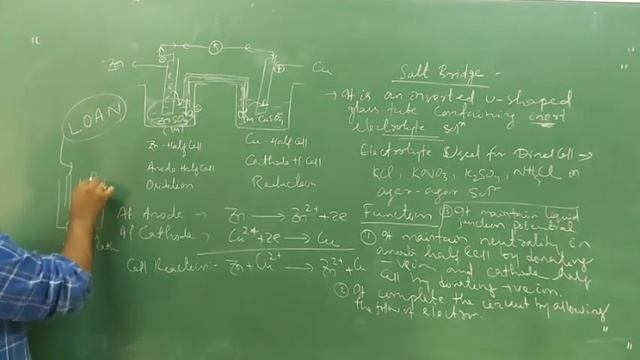 Zn
Cu
ZnSO4
(1M)
1M CuSO4
LOAN
Zn-Half Cell
Anode Half Cell
Oxidation
Cu-Half Cell
Cathode H. Cell
Reduction
At Anode → Zn → Zn2+ + 2e
At Cathode → Cu2+ + 2e → Cu
Cell Reaction:- Zn + Cu2+ → Zn2+ + Cu
Salt Bridge -
→ It is an inverted U-shaped
glass tube containing inert
electrolyte Sol
Electrolyte Used for Diniel Cell →
KCl, KNO3, K2SO4, NH4Cl or
ager-agar Sol
Function
③ It maintain liquid
junction potential
① It maintain neutrality in
anode half cell by donating
-ve ion and cathode half
cell by donating +ve ion.
② It complete the circuit by allowing
the flow of electron.